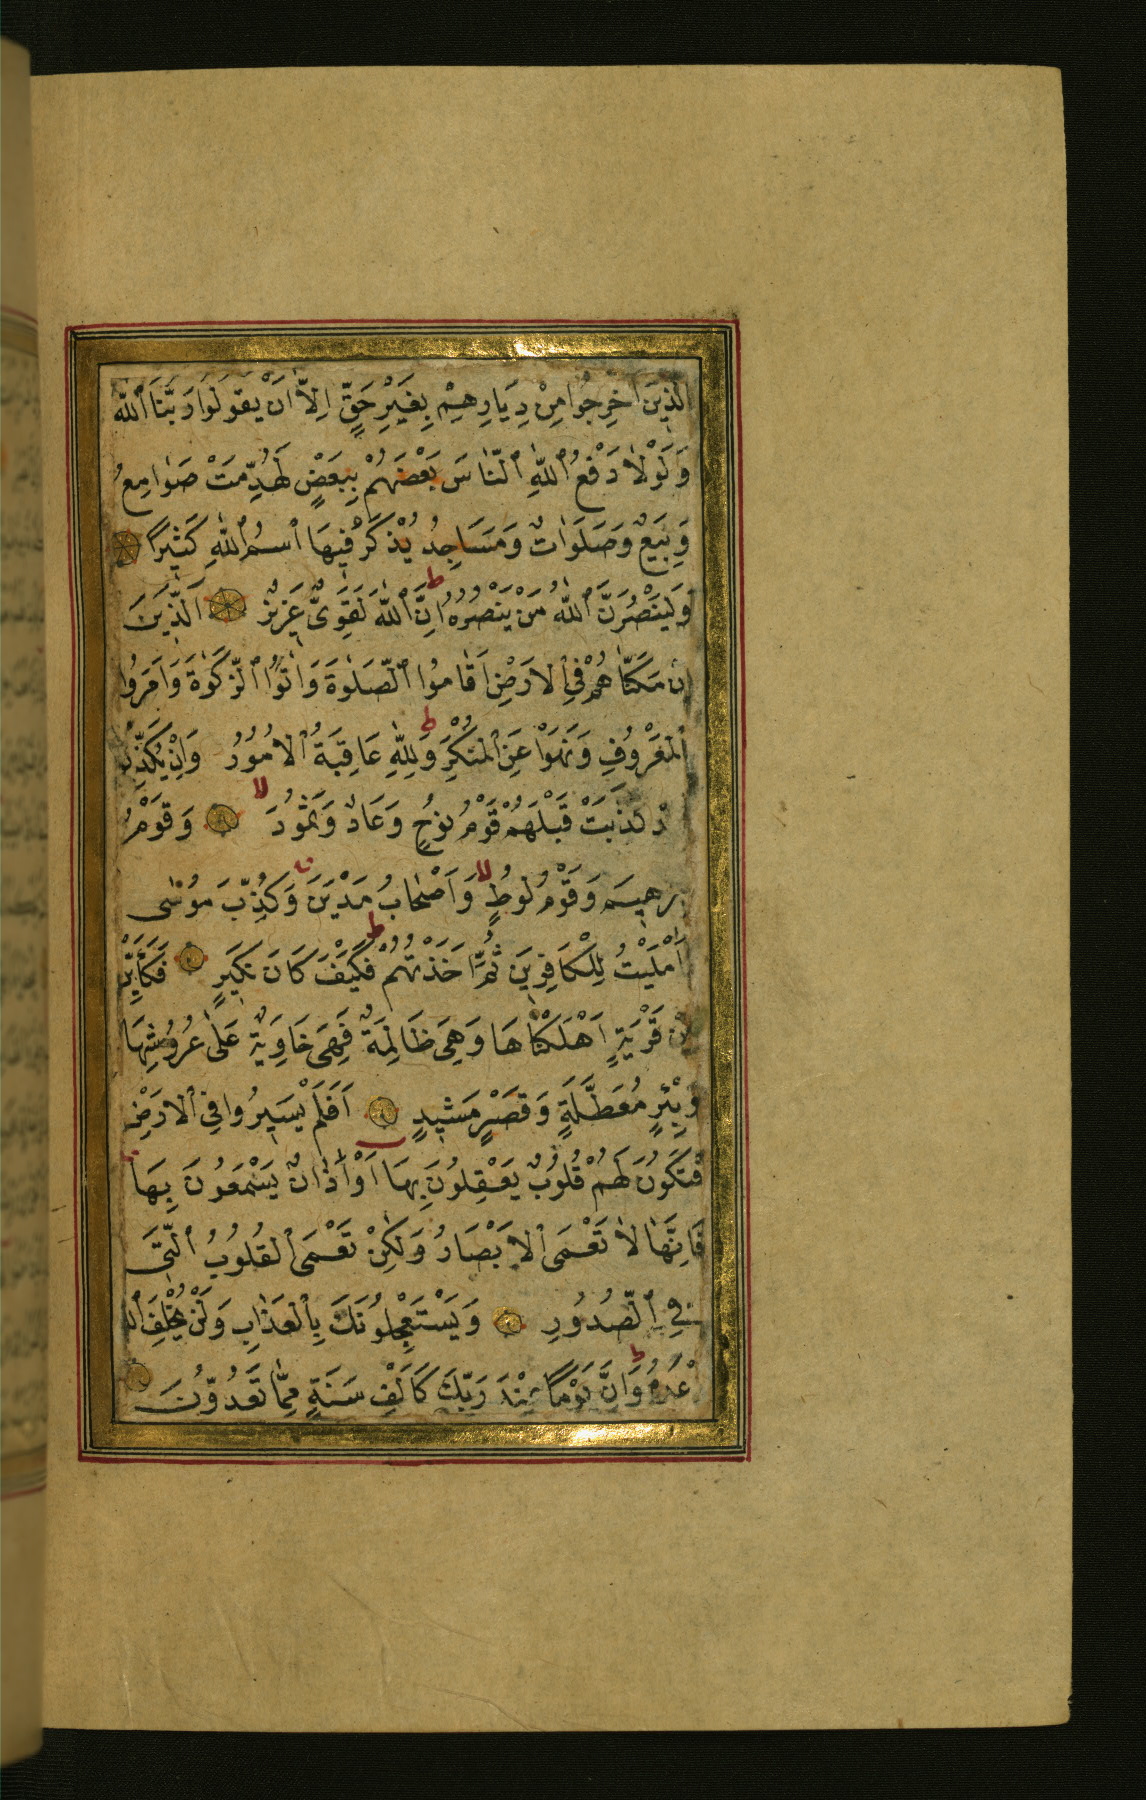 اَلَّذِينَ اُخْرِجُوا مِنْ دِيَارِهِمْ بِغَيْرِ حَقٍّ اِلَّا اَنْ يَقُولُوا رَبُّنَا ٱللّٰهُ
وَلَوْلَا دَفْعُ ٱللّٰهِ ٱلنَّاسَ بَعْضَهُمْ بِبَعْضٍ لَهُدِّمَتْ صَوَامِعُ
وَبِيَعٌ وَصَلَوَاتٌ وَمَسَاجِدُ يُذْكَرُ فِيهَا ٱسْمُ ٱللّٰهِ كَثِيرًا
وَلَيَنْصُرَنَّ ٱللّٰهُ مَنْ يَنْصُرُهُ ط اِنَّ ٱللّٰهَ لَقَوِىٌّ عَزِيزٌ اَلَّذِينَ
اِنْ مَكَّنَّاهُمْ فِي ٱلْاَرْضِ اَقَامُوا ٱلصَّلٰوةَ وَاٰتَوُا ٱلزَّكٰوةَ وَاَمَرُوا
بِٱلْمَعْرُوفِ وَنَهَوْا عَنِ ٱلْمُنْكَرِ ط وَلِلّٰهِ عَاقِبَةُ ٱلْاُمُورِ وَاِنْ يُكَذِّبُ
كَذَّبَتْ قَبْلَهُمْ قَوْمُ نُوحٍ وَعَادٌ وَثَمُودُ لا وَقَوْمُ
اِبْرٰهِيمَ وَقَوْمُ لُوطٍ لا وَاَصْحَابُ مَدْيَنَ وَكُذِّبَ مُوسٰى
اَمْلَيْتُ لِلْكَافِرِينَ ثُمَّ اَخَذْتُهُمْ ط فَكَيْفَ كَانَ نَكِيرِ فَكَاَيِّنْ
مِنْ قَرْيَةٍ اَهْلَكْنَاهَا وَهِىَ ظَالِمَةٌ فَهِىَ خَاوِيَةٌ عَلٰى عُرُوشِهَا
وَبِئْرٍ مُعَطَّلَةٍ وَقَصْرٍ مَشِيدٍ اَفَلَمْ يَسِيرُوا فِي ٱلْاَرْضِ
فَتَكُونَ لَهُمْ قُلُوبٌ يَعْقِلُونَ بِهَا اَوْ اٰذَانٌ يَسْمَعُونَ بِهَا
فَاِنَّهَا لَا تَعْمَى ٱلْاَبْصَارُ وَلٰكِنْ تَعْمَى ٱلْقُلُوبُ ٱلَّتِى
فِي ٱلصُّدُورِ وَيَسْتَعْجِلُونَكَ بِٱلْعَذَابِ وَلَنْ يُخْلِفَ ٱللّٰهُ
وَعْدَهُ ط وَاِنَّ يَوْمًا عِنْدَ رَبِّكَ كَاَلْفِ سَنَةٍ مِمَّا تَعُدُّونَ